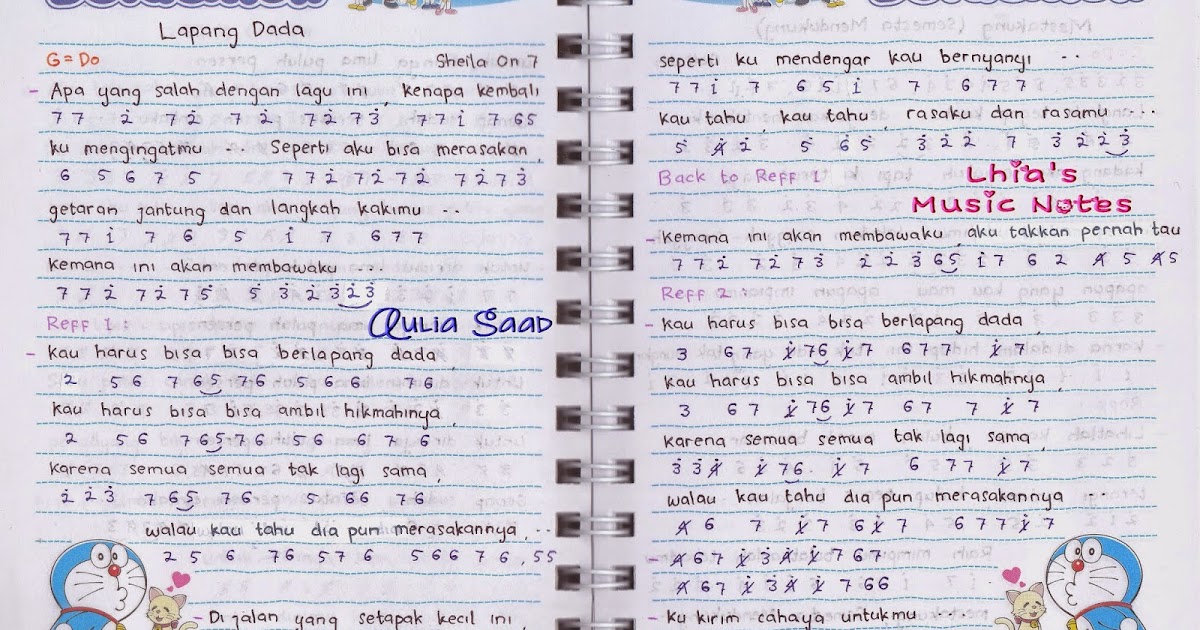 Lapang Dada
G = Do Sheila On 7
- Apa yang salah dengan lagu ini, kenapa kembali
7 7 2̇ 7 2̇ 7 2̇ 7 2̇ 7 3̇ 7 7 1̇ 7 6 5
ku mengingatmu ... Seperti aku bisa merasakan,
6 5 6 7 5 7 7 2̇ 7 2̇ 7 2̇ 7 2̇ 7 3̇
getaran jantung dan langkah kakimu ..
7 7 1̇ 7 6 5 1̇ 7 6 7 7
Kemana ini akan membawaku ...
7 7 2̇ 7 2̇ 7 5̇ 5̇ 3̇ 2̇ 3̇ 2̇ 3̇
Reff 1 :
- Kau harus bisa bisa berlapang dada,
2 5 6 7 6 5 7 6 5 6 6 7 6
Kau harus bisa bisa ambil hikmahnya,
2 5 6 7 6 5 7 6 5 6 6 7 6
Karena semua semua tak lagi sama,
2̇ 2̇ 3̇ 7 6 5 7 6 5 6 6 7 6
walau kau tahu dia pun merasakannya, ..
2 5 6 7 6 5 7 6 5 6 6 7 6, 5 5
- Di jalan yang setapak kecil ini,
seperti ku mendengar kau bernyanyi ..
7 7 1̇ 7 6 5 1̇ 7 6 7 7
kau tahu, kau tahu, rasaku dan rasamu ...
5̇ 4̸̇ 2̇ 5̇ 6̇ 5̇ 3̇ 2̇ 2̇ 7 3̇ 2̇ 2̇ 3̇
Back to Reff 1
Lhia's
Music Notes
- Kemana ini akan membawaku, aku takkan pernah tau
7 7 2̇ 7 2̇ 7 3̇ 2̇ 2̇ 3̇ 6 5 1̇ 7 6 2 4̸ 5 4̸ 5
Reff 2 :
- Kau harus bisa bisa berlapang dada,
3 6 7 1̸̇ 7 6 1̸̇ 7 6 7 7 1̸̇ 7
Kau harus bisa bisa ambil hikmahnya,
3 6 7 1̸̇ 7 6 1̸̇ 7 6 7 7 1̸̇ 7
karena semua semua tak lagi sama,
3̇ 3̇ 4̸̇ 1̸̇ 7 6 1̸̇ 7 6 7 7 1̸̇ 7
walau kau tahu dia pun merasakannya ...
4̸ 6 7 1̸̇ 7 6 1̸̇ 7 6 7 7 1̸̇ 7
- 4̸ 6 7 1̸̇ 3̇ 4̸̇ 1̸̇ 7 6 7
4̸ 6 7 1̸̇ 3̇ 4̸̇ 1̸̇ 7 6 6
- Ku kirim cahaya untukmu
Aulia Saad